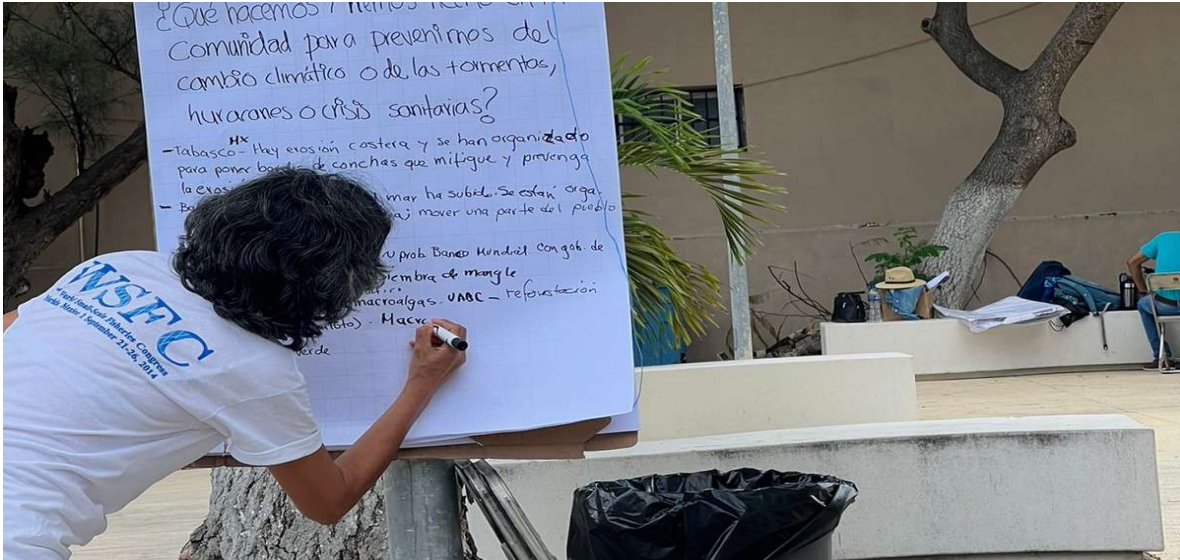 ¿Qué hacemos / hemos hecho en
Comunidad para prevenirnos del
cambio climático o de las tormentas,
huracanes o crisis sanitarias?
-Tabasco- Hay erosión costera y se han organizado
MX
para poner de conchas que mitigue y prevenga
la
- mar ha subido. Se están orga-
mover una parte del pueblo
prob. Banco Mundial con gob. de
de mangle
macroalgas. UABC - reforestación
WSFC
2nd World Small-Scale Fisheries Congress
Mérida, México | September 21-26, 2014